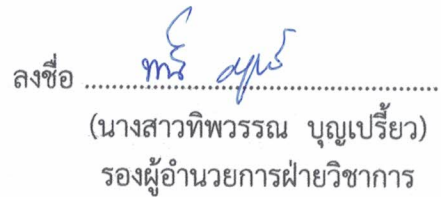 ลงชื่อ ........................................................
(นางสาวทิพวรรณ บุญเปรี้ยว)
รองผู้อำนวยการฝ่ายวิชาการ